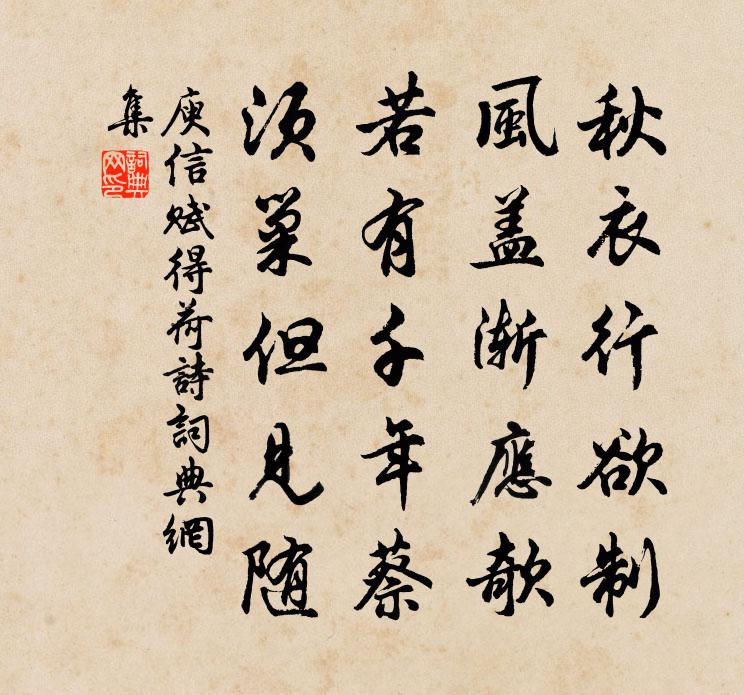 秋衣行欲制
風盖渐應欹
若有千年蔡
須巢但見随
庾信賦得荷詩詞典網
集
詞典网印